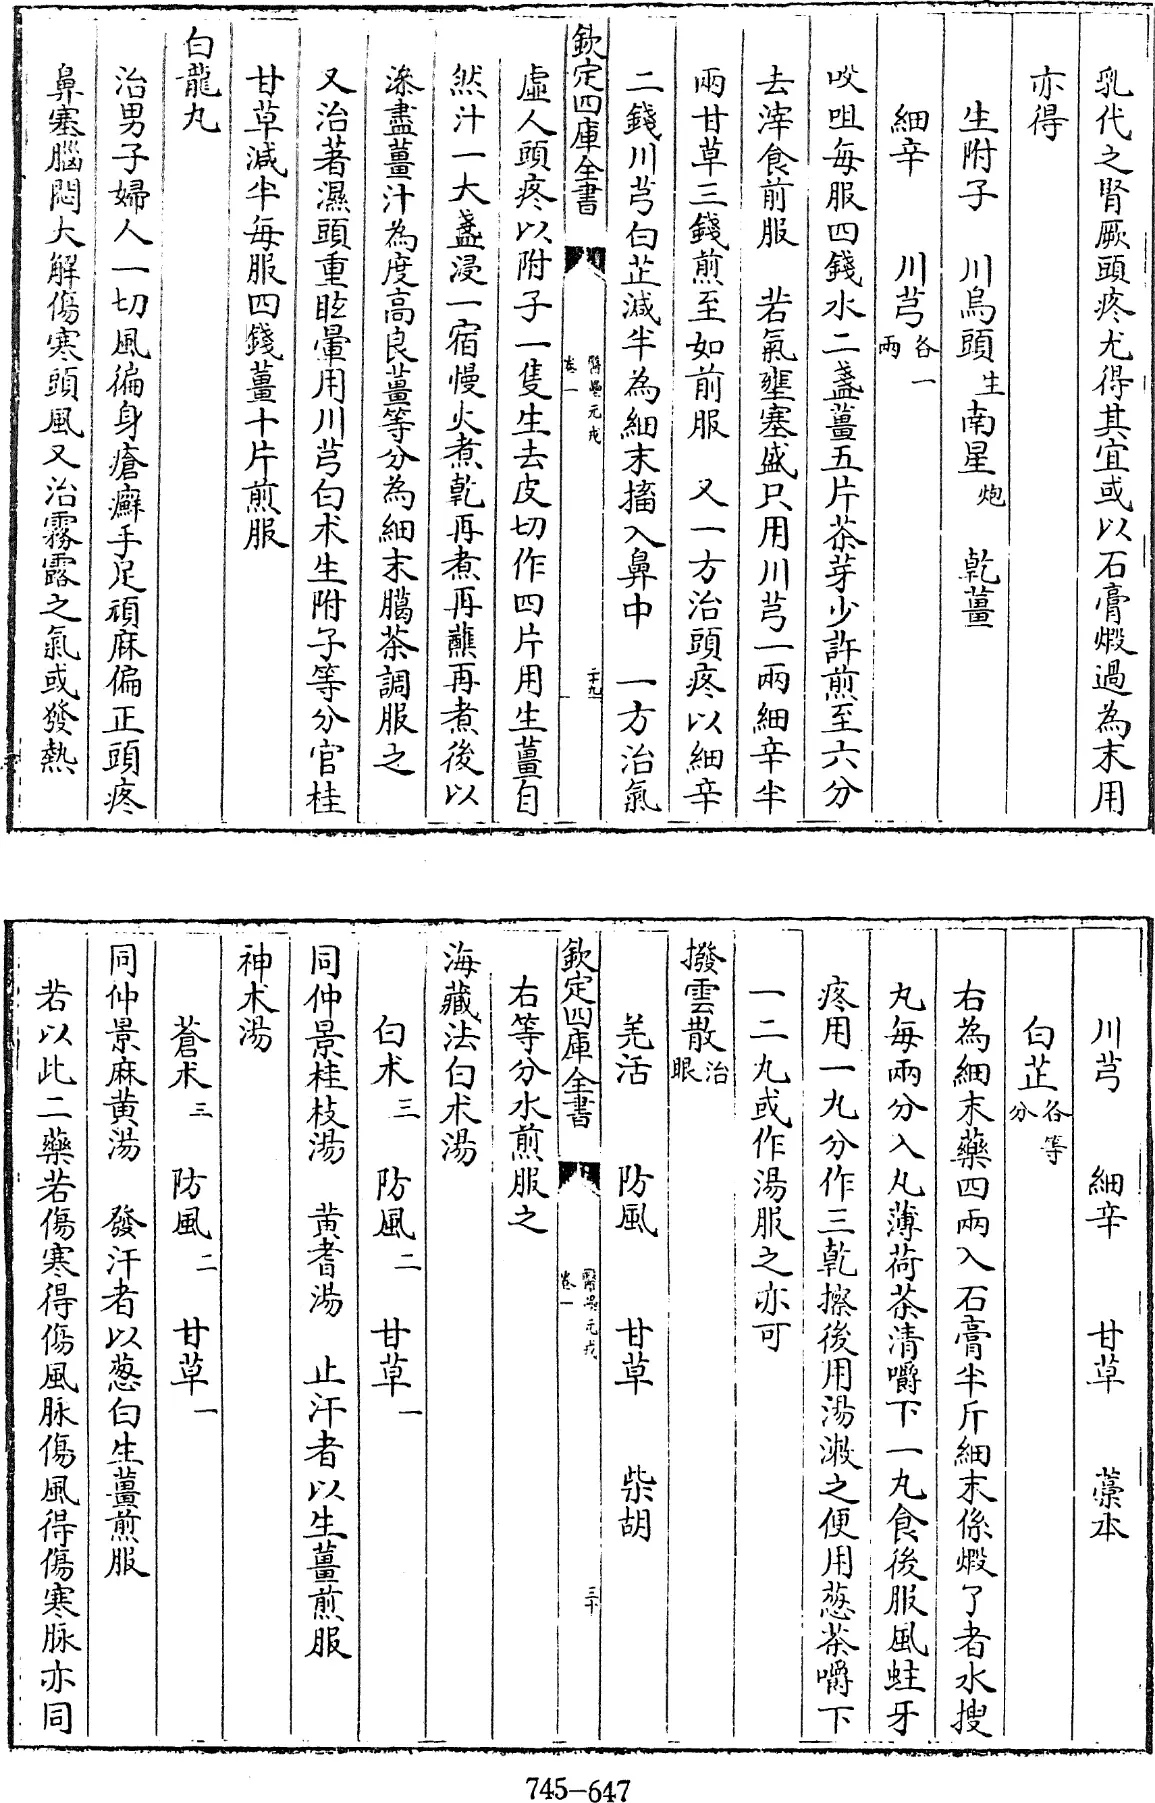 乳代之腎厥頭疼尤得其宜或以石膏煅過為末用
亦得
生附子 川烏頭生 南星炮 乾薑
細辛 川芎各一兩
㕮咀每服四錢水二盞薑五片茶芽少許煎至六分
去滓食前服 若氣壅塞盛只用川芎一兩細辛半
兩甘草三錢煎至如前服 又一方治頭疼以細辛
二錢川芎白芷減半為細末搐入鼻中 一方治氣
欽定四庫全書 醫壘元戎 卷一 二十九
虛人頭疼以附子一隻生去皮切作四片用生薑自
然汁一大盞浸一宿慢火煮乾再煮再蘸再煮後以
滲盡薑汁為度高良薑等分為細末臈茶調服之
又治著濕頭重眩暈用川芎白术生附子等分官桂
甘草減半每服四錢薑十片煎服
白龍丸
治男子婦人一切風徧身瘡癬手足頑麻偏正頭疼
鼻塞腦悶大解傷寒頭風又治霧露之氣或發熱
川芎 細辛 甘草 藁本
白芷各等分
右為細末藥四兩入石膏半斤細末係煅了者水搜
丸每兩分入丸薄荷茶清嚼下一丸食後服風蛀牙
疼用一丸分作三乾擦後用湯潄之便用葱茶嚼下
一二丸或作湯服之亦可
撥雲散治眼
羌活 防風 甘草 柴胡
欽定四庫全書 醫壘元戎 卷一 三十
右等分水煎服之
海藏法白术湯
白术三 防風二 甘草一
同仲景桂枝湯 黄耆湯 止汗者以生薑煎服
神术湯
蒼术三 防風二 甘草一
同仲景麻黄湯 發汗者以葱白生薑煎服
若以此二藥若傷寒得傷風脉傷風得傷寒脉亦同
745-647